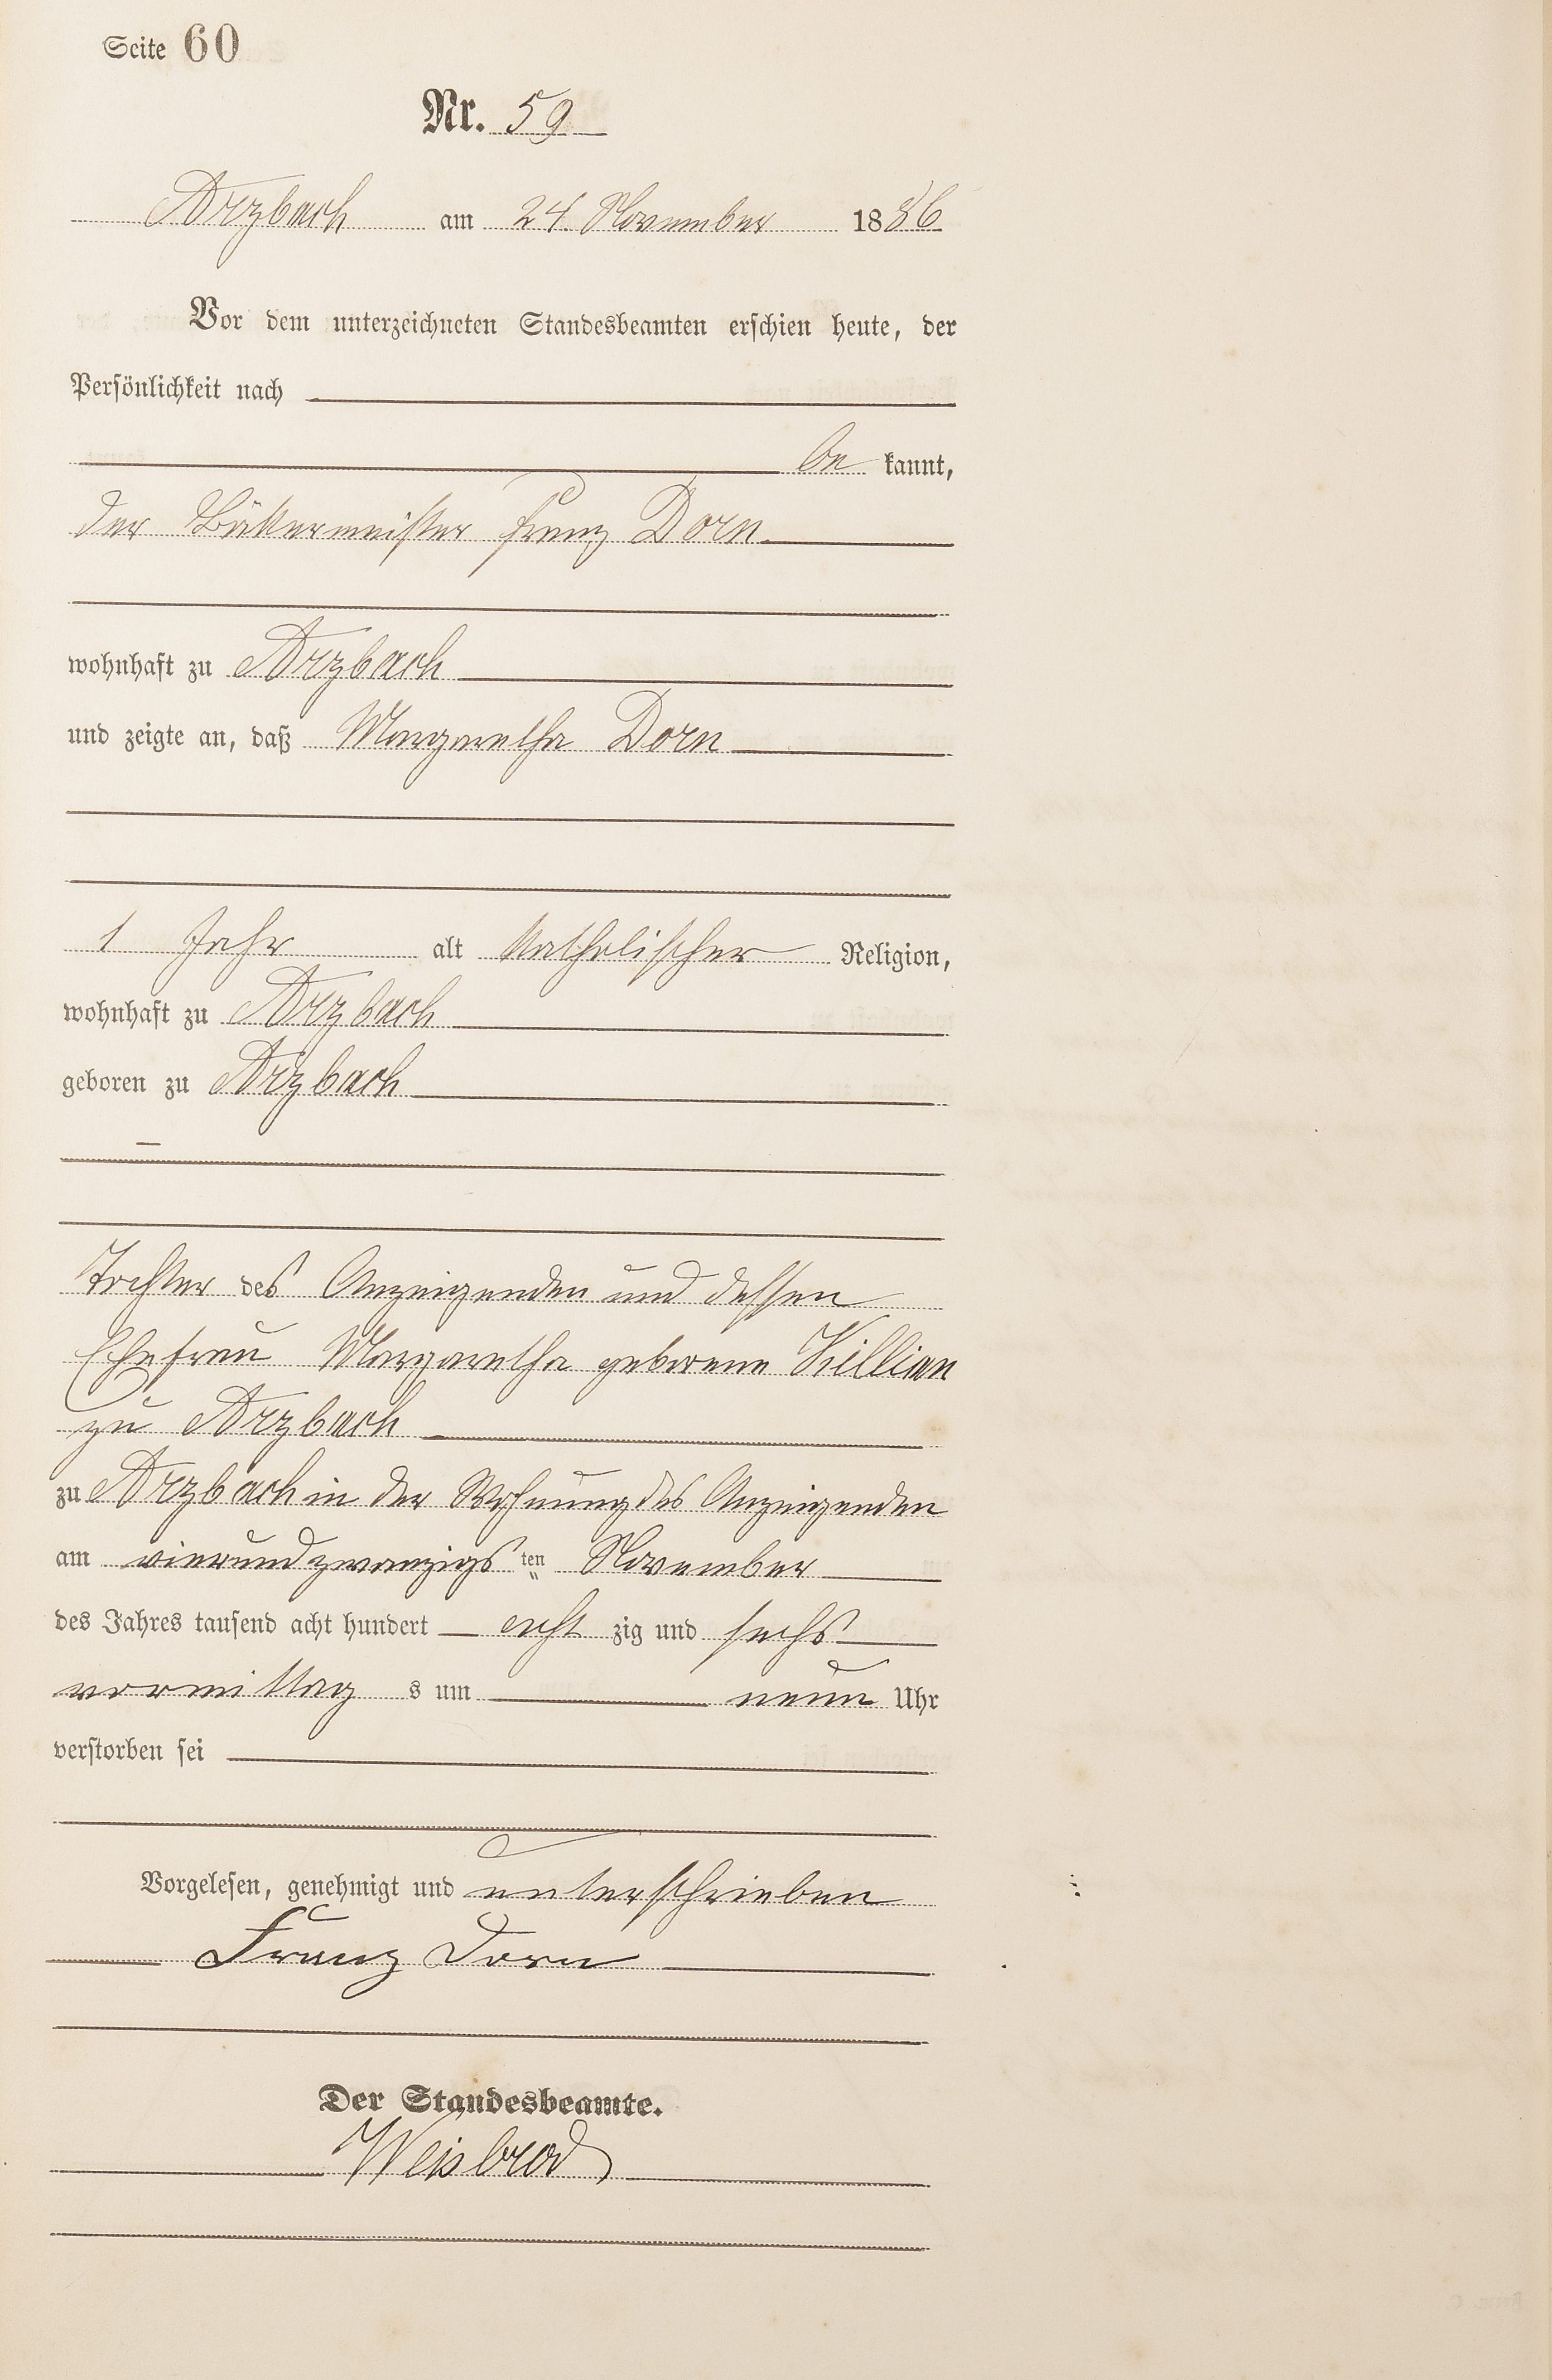 Seite 60
Nr. 59
Arzbach am 24. November 1886.
Vor dem unterzeichneten Standesbeamten erschien heute, der
Persönlichkeit nach
be kannt,
der Bäckermeister Franz Dorn
wohnhaft zu Arzbach
und zeigte an, daß Margaretha Dorn
1 Jahr alt katholischer Religion,
wohnhaft zu Arzbach
geboren zu Arzbach
Tochter des Anzeigenden und dessen
Ehefrau Margaretha geborene Killian
zu Arzbach
zu Arzbach in der Wohnung des Anzeigenden
am vierundzwanzigs ten November
des Jahres tausend acht hundert acht zig und sechs
vormittag s um neun Uhr
verstorben sei
Vorgelesen, genehmigt und unterschrieben
Franz Dorn
Der Standesbeamte.
Weisbrod